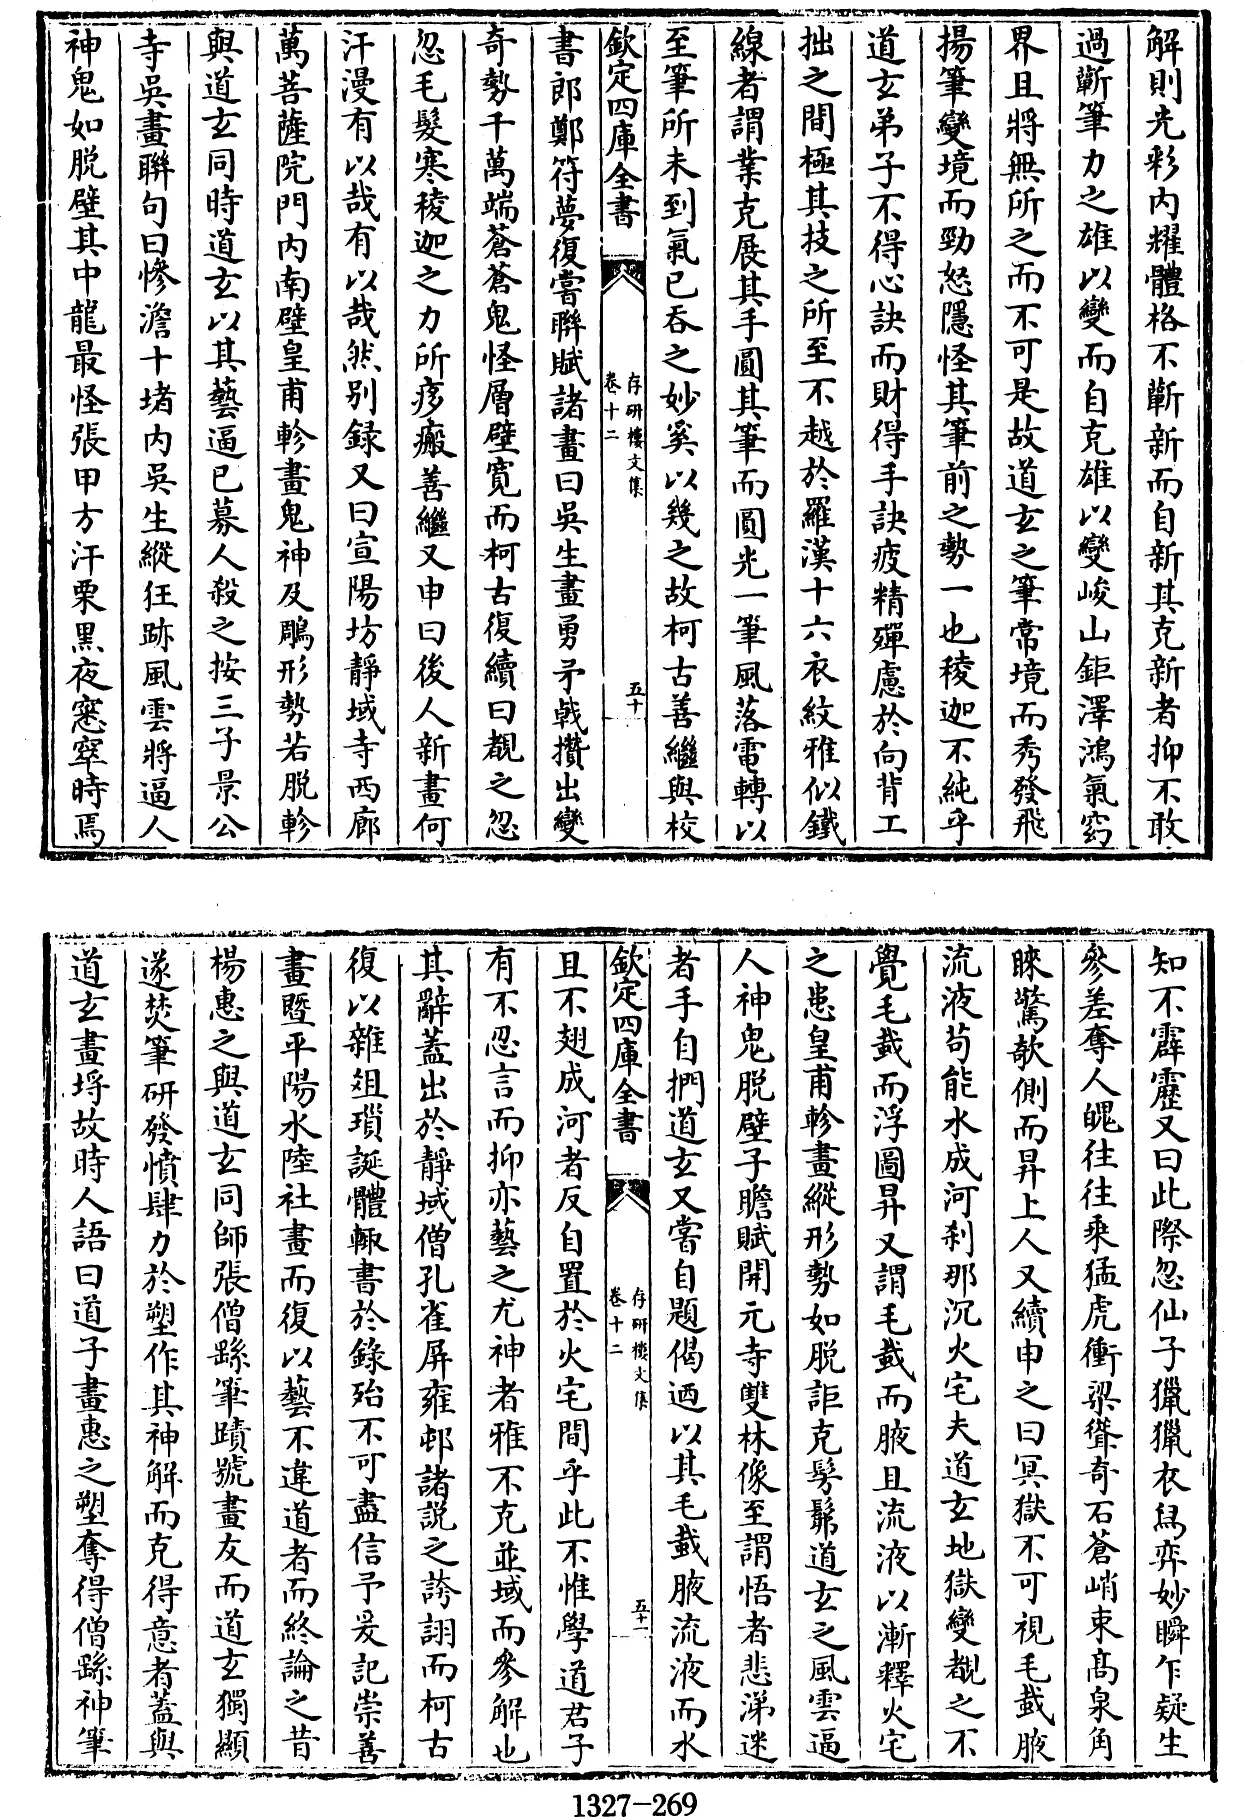 解則光彩内耀體格不嶄新而自新其克新者抑不敢
過嶄筆力之雄以變而自克雄以變峻山鉅澤鴻氣窈
界且將無所之而不可是故道玄之筆常境而秀發飛
揚筆變境而勁怒隱怪其筆前之勢一也稜迦不純乎
道玄弟子不得心訣而財得手訣疲精殫慮於向背工
拙之間極其技之所至不越於羅漢十六衣紋雅似鐵
線者謂業克展其手圓其筆而圓光一筆風落電轉以
至筆所未到氣已吞之妙奚以幾之故柯古善繼與校
欽定四庫全書
存研樓文集
卷十二
五十
書郎鄭符夢復嘗聯賦諸畫曰吳生畫勇矛戟攢出變
奇勢千萬端蒼蒼鬼怪層壁寛而柯古復續曰覩之忽
忽毛髮寒稜迦之力所疼瘢善繼又申曰後人新畫何
汗漫有以哉有以哉然别録又曰宣陽坊靜域寺西廊
萬菩薩院門内南壁皇甫軫畫鬼神及鵰形勢若脱軫
與道玄同時道玄以其藝逼已募人殺之按三子景公
寺吳畫聯句曰慘澹十堵内吳生縱狂跡風雲將逼人
神鬼如脱壁其中龍最怪張甲方汗栗黒夜窸窣時焉
知不霹靂又曰此際忽仙子獵獵衣舄弈妙瞬乍疑生
參差奪人魄往往乘猛虎衝梁聳奇石蒼峭束髙泉角
睞驚欹側而昇上人又續申之曰冥獄不可視毛戴腋
流液苟能水成河刹那沉火宅夫道玄地獄變覩之不
覺毛戴而浮圖昇又謂毛戴而腋且流液以漸釋火宅
之患皇甫軫畫縱形勢如脱詎克髣髴道玄之風雲逼
人神鬼脱壁子瞻賦開元寺雙林像至謂悟者悲涕迷
者手自捫道玄又嘗自題偈迺以其毛戴腋流液而水
欽定四庫全書
存研樓文集
卷十二
五十一
且不翅成河者反自置於火宅間乎此不惟學道君子
有不忍言而抑亦藝之尤神者雅不克並域而參解也
其辭蓋出於靜域僧孔雀屏雍邨諸説之誇詡而柯古
復以雜俎瑣誕體輙書於錄殆不可盡信予爰記崇善
畫暨平陽水陸社畫而復以藝不違道者而終論之昔
楊惠之與道玄同師張僧繇筆蹟號畫友而道玄獨顯
遂焚筆硏發憤肆力於塑作其神解而克得意者蓋與
道玄畫埓故時人語曰道子畫惠之塑奪得僧繇神筆
1327-269